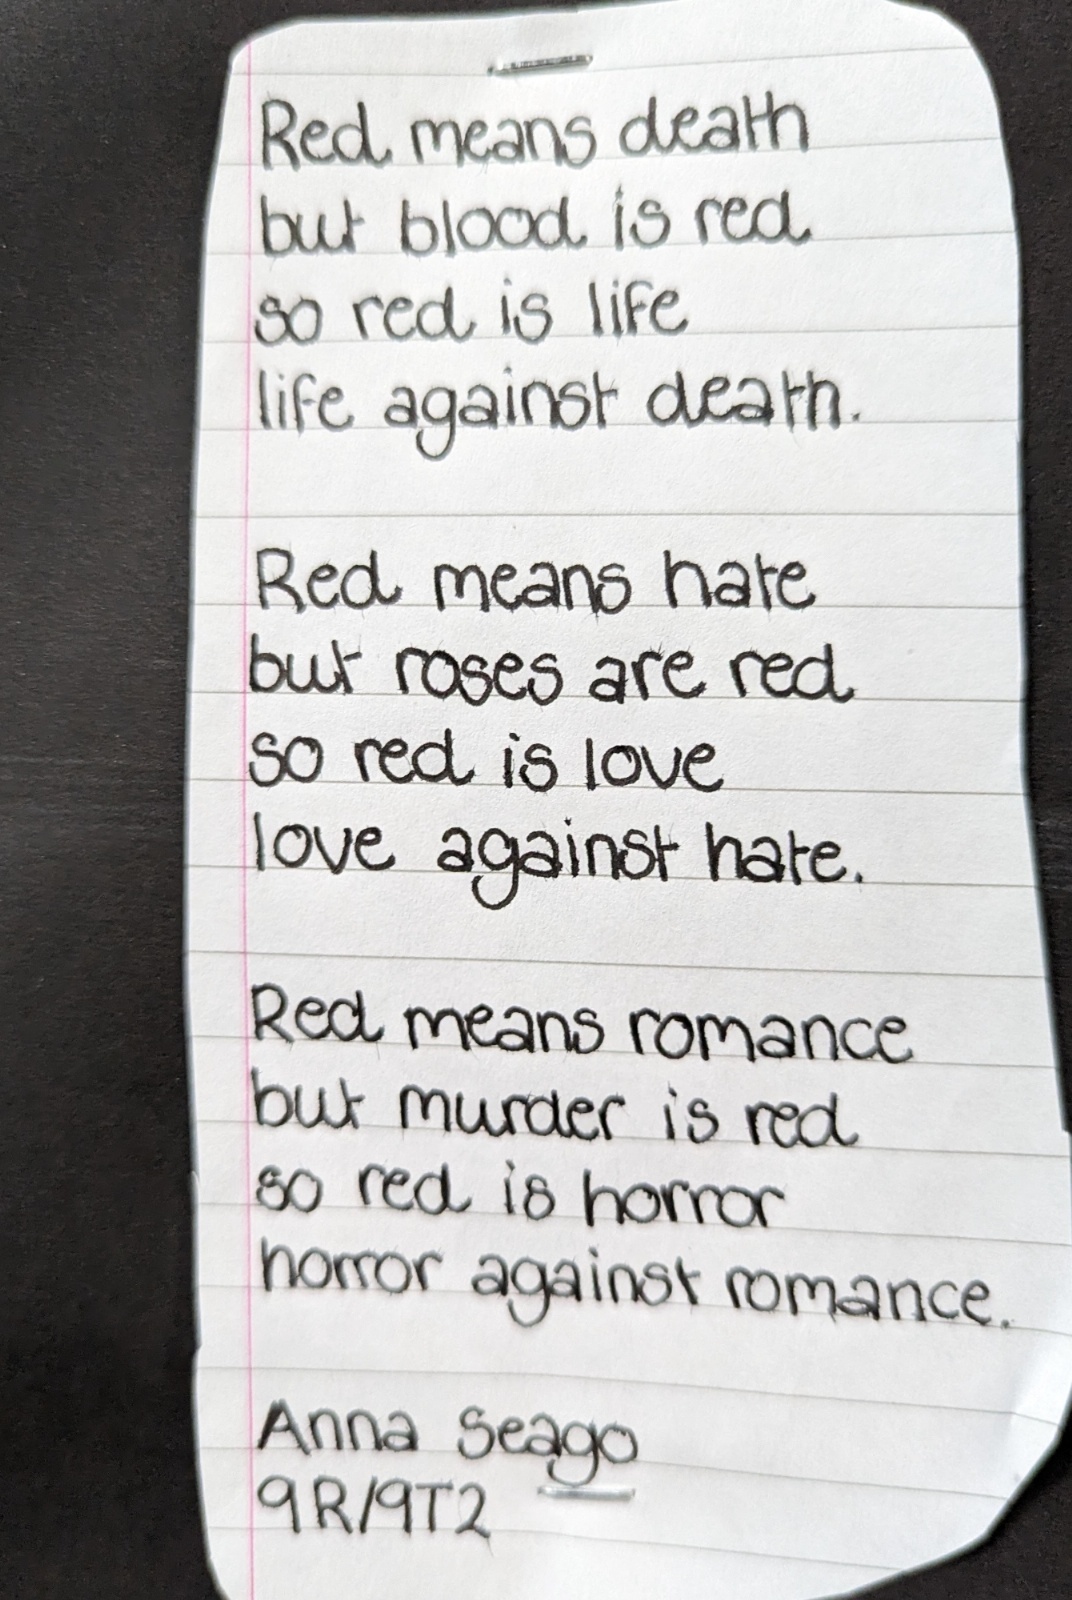 Red means death
but blood is red
so red is life
life against death.
Red means hate
but roses are red
so red is love
love against hate.
Red means romance
but murder is red
so red is horror
horror against romance.
Anna Seago
9R/9T2